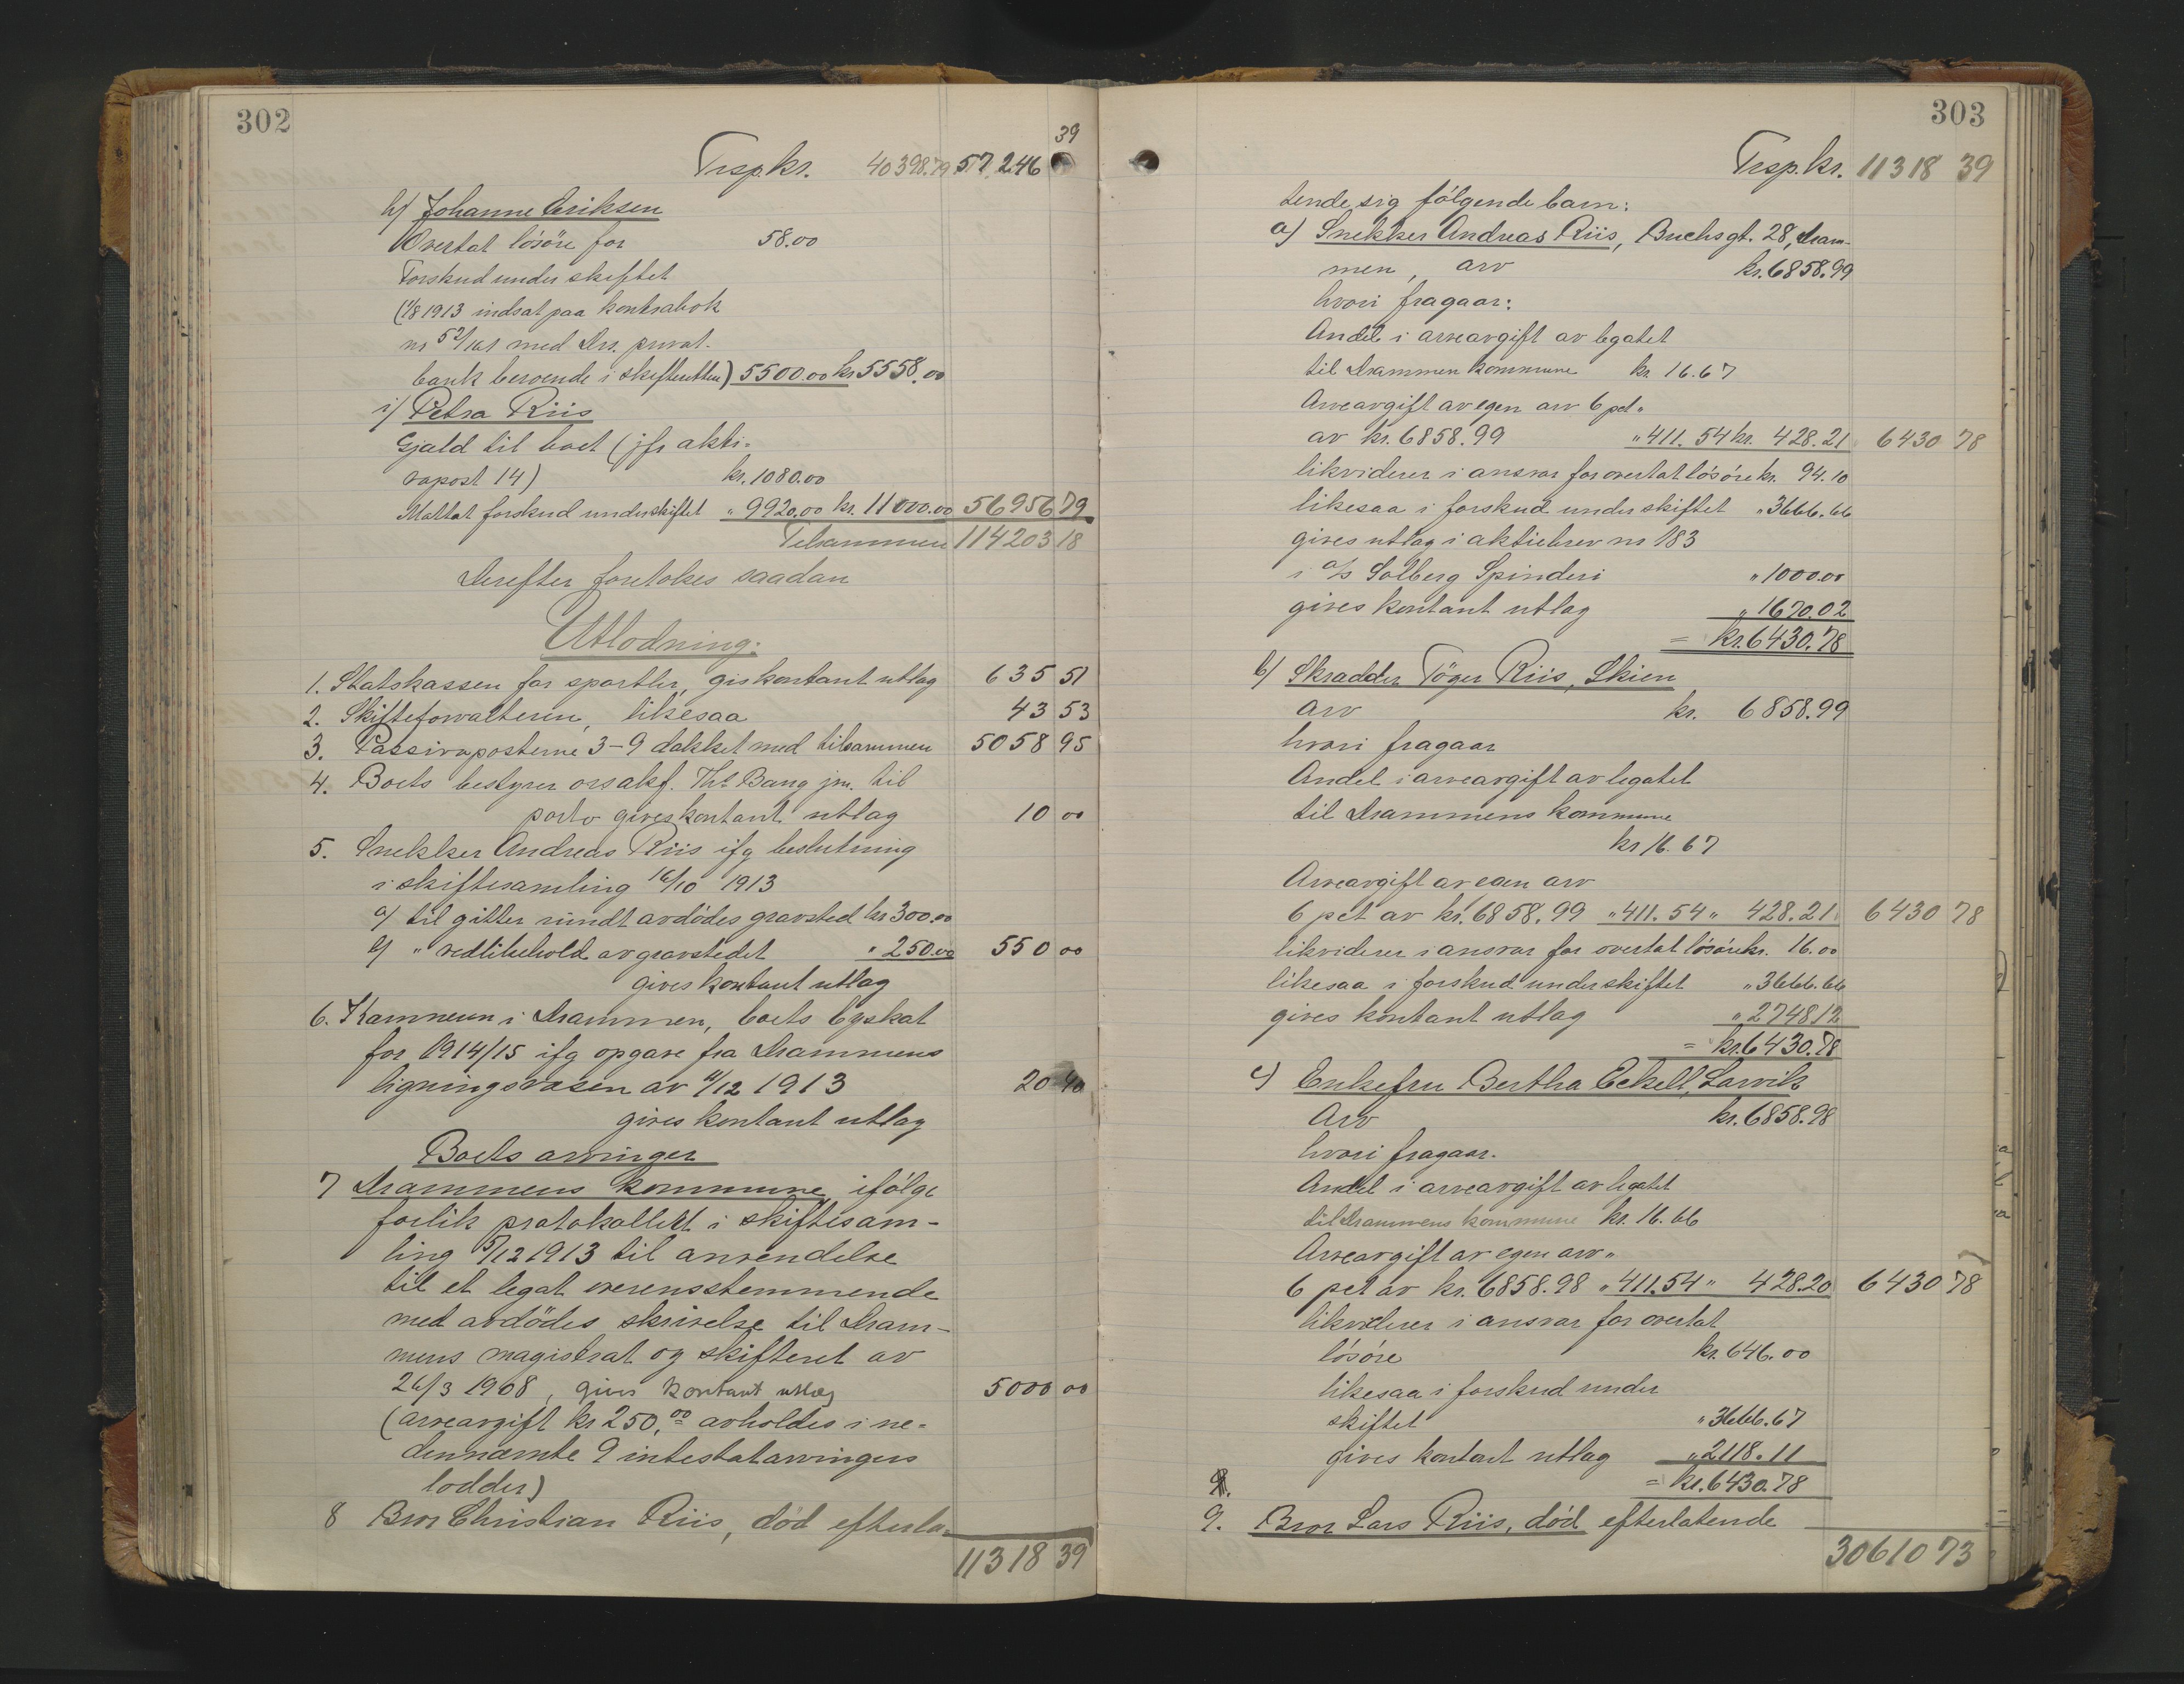 302
39
Trsp. kr. 40398.79 57246
h) Johanne Eriksen
Overtat lösöre for 58.00
Forskud under skiftet
(1/8 1913 indsat paa kontrabok
bank beroende i skifteretten) 5500.00 kr 5558.00
i) Petra Riis
Gjæld til boet (jfr akti-
vapost 14) kr. 1080.00
Mottat forskud under skiftet " 9920.00 kr. 11000.00 56956 79
Tilsammen 114203 18
Derefter foretokes saadan
Utlodning:
1. Statskassen for sportler, gis kontant utlæg 635 51
2. Skifteforvalteren, likesaa 43 53
3. Passivaposterne 3-9 dækket med tilsammen 5058 95
4. Boets bestyrer orsakf. Th. Bang jnr. til
porto gives kontant utlæg 10 00
5. Snekker Andreas Riis ifg beslutning
i skiftesamling 16/10 1913
a) til gitter rundt avdödes gravsted kr 300.00
b) " vedlikehold av gravstedet " 250.00 550 00
gives kontant utlæg
6. Kæmneren i Drammen, boets byskat
for 1914/15 ifg opgave fra Drammens
ligningsvæsen av 4/12 1913 20 40
gives kontant utlæg
Boets arvinger
7 Drammens kommune ifölge
forlik protokollert i skiftesam-
ling 5/12 1913 til anvendelse
til et legat overensstemmende
med avdödes skrivelse til Dram-
mens magistrat og skifteret av
26/3 1908, gives kontant utlæg 5000 00
(arveavgift kr 250,00 avholdes i ne-
dennævnte 9 intestatarvingers
lodder)
8 Bror Christian Riis, död efterla-
11318 39
303
Trsp. kr. 11318 39
tende sig fölgende barn:
a) Snekker Andreas Riis, Buchsgt. 28, Dram-
men, arv kr. 6858.99
hvori fragaar:
Andel i arveavgift av legatet
til Drammen kommune kr. 16.67
Arveavgift av egen arv 6 pct "
av kr. 6858.99 " 411.54 kr. 428.21 6430 78
likviderer i ansvar for overtat lösöre kr. 94.10
likesaa i forskud under skiftet " 3666.66
gives utlæg i aktiebrev nr 183
i A/S Solberg Spinderi " 1000.00
gives kontant utlæg " 1670.02
= kr. 6430.78
b) Skrædder Töger Riis, Skien
arv kr. 6858.99
hvori fragaar
Andel i arveavgift av legatet
til Drammens kommune
kr 16.67
Arveavgift av egen arv
6 pct av kr. 6858.99 " 411.54 " 428.21 6430 78
likviderer i ansvar for overtat lösöre kr. 16.00
likesaa i forskud under skiftet " 3666.66
gives kontant utlæg " 2748.12
= kr. 6430.78
c) Enkefru Bertha Eckell, Larvik
Arv kr. 6858.98
hvori fragaar.
Andel i arveavgift av legatet
til Drammens kommune kr. 16.66
Arveavgift av egen arv "
6 pct av kr. 6858.98 " 411.54 " 428.20 6430 78
likviderer i ansvar for overtat
lösöre kr. 646.00
likesaa i forskud under
skiftet " 3666.67
gives kontant utlæg " 2118.11
= kr. 6430.78
9. Bror Lars Riis, död efterlatende
30610 73